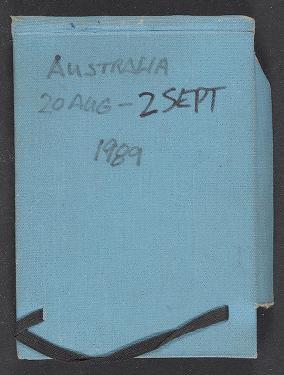 AUSTRALIA
20 AUG - 2 SEPT
1989